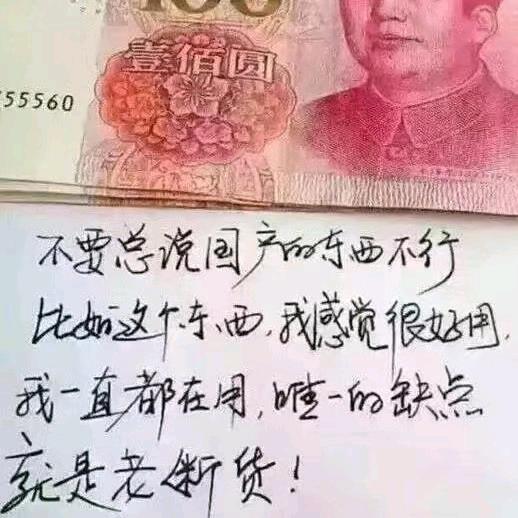 100
壹佰圆
55560
不要总说国产的东西不行
比如这个东西,我感觉很好用,
我一直都在用,唯一的缺点
就是老断货!